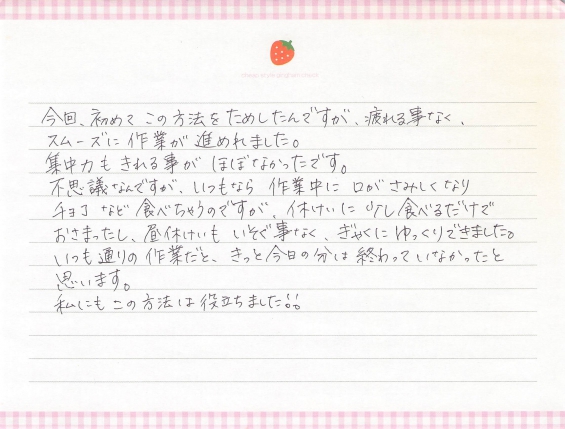 今回、初めてこの方法をためしたんですが、疲れる事なく、
スムーズに作業が進めれました。
集中力もきれる事がほぼなかったです。
不思議なんですが、いつもなら作業中に口がさみしくなり
チョコなど食べちゃうのですが、休けいに少し食べるだけで
おさまったし、昼休けいもいそぐ事なく、ぎゃくにゆっくりできました。
いつも通りの作業だと、きっと今日の分は終わっていなかったと
思います。
私にもこの方法は役立ちました!!